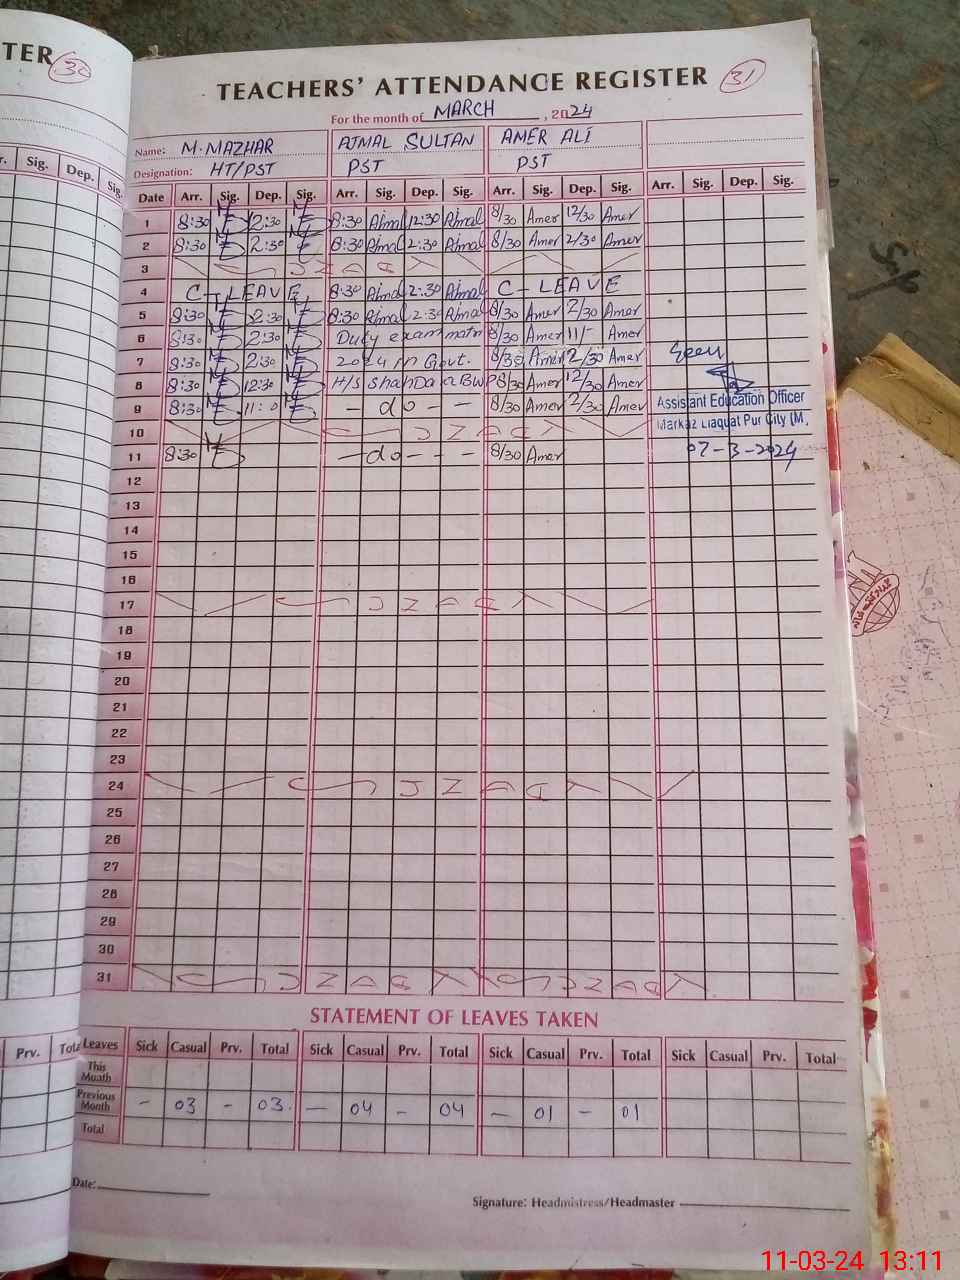 TER 30
TEACHERS' ATTENDANCE REGISTER 31
For the month of MARCH, 2024
Name: M. MAZHAR AJMAL SULTAN AMER ALI
Designation: HT/PST PST PST
r. Sig. Dep. Sig.
Date Arr. Sig. Dep. Sig. Arr. Sig. Dep. Sig. Arr. Sig. Dep. Sig. Arr. Sig. Dep. Sig.
1 8:30 12:30 8:30 Ajmal 12:30 Ajmal 8/30 Amer 12/30 Amer
2 8:30 2:30 8:30 Ajmal 2:30 Ajmal 8/30 Amer 2/30 Amer
3
4 C-LEAVE 8:30 Ajmal 2:30 Ajmal C-LEAVE
5 8:30 2:30 8:30 Ajmal 2:30 Ajmal 8/30 Amer 2/30 Amer
6 8:30 2:30 Duty 8/30 Amer 11/- Amer
7 8:30 2:30 2024 in Govt. 8/30 Amer 2/30 Amer Seen
8 8:30 12:30 H/S 8/30 Amer 12/30 Amer
9 8:30 11:0 - do - - 8/30 Amer 2/30 Amer Assistant Education Officer
10 Markaz Liaquat Pur City (M.
11 8:30 - do - - - 8/30 Amer 07-3-2024
12
13
14
15
16
17
18
19
20
21
22
23
24
25
26
27
28
29
30
31
STATEMENT OF LEAVES TAKEN
Prv. Tota Leaves Sick Casual Prv. Total Sick Casual Prv. Total Sick Casual Prv. Total Sick Casual Prv. Total
This Muath
Previous Month - 03 - 03. - 04 - 04 - 01 - 01
Total
Date:
Signature: Headmistress/Headmaster
11-03-24 13:11